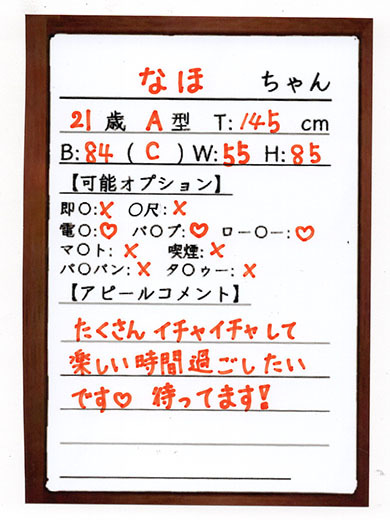 なほ ちゃん
21歳 A型 T:145 cm
B:84 ( C ) W:55 H:85
【可能オプション】
即〇:× 〇尺:×
電〇:♡ バ〇ブ:♡ ロー〇ー:♡
マ〇ト: × 喫煙:×
パ〇パン: × タ〇ゥー: ×
【アピールコメント】
たくさんイチャイチャして
楽しい時間過ごしたい
です♡ 待ってます!